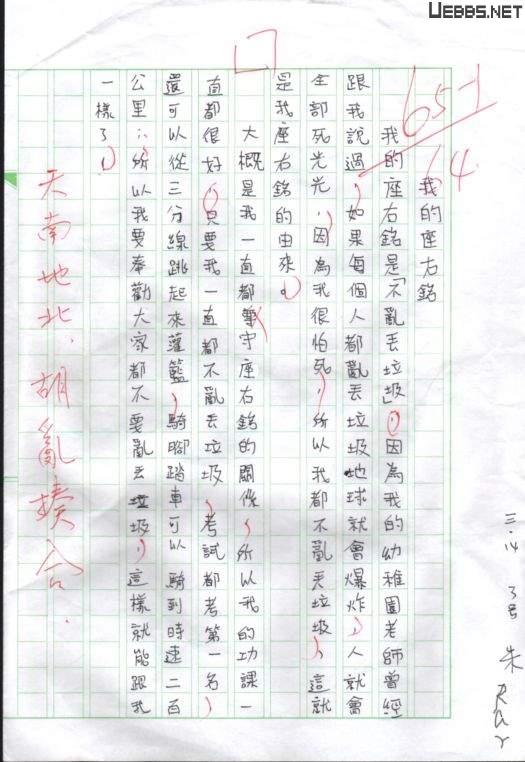 UEBBS.NET
65-1
64.
三.14 3号 朱
我的座右銘
我的座右銘是「不亂丟垃圾」，因為我的幼稚園老師曾經
跟我說過，如果每個人都亂丟垃圾地球就會爆炸，人就會
全部死光光，因為我很怕死，所以我都不亂丟垃圾，這就
是我座右銘的由來。
大概是我一直都遵守座右銘的關係，所以我的功課一
直都很好，只要我一直都不亂丟垃圾，考試都考第一名，
還可以從三分線跳起來灌籃，騎腳踏車可以騎到時速二百
公里，所以我要奉勸大家都不要亂丟垃圾，這樣就能跟我
一樣了！
天南地北.胡亂揍合.